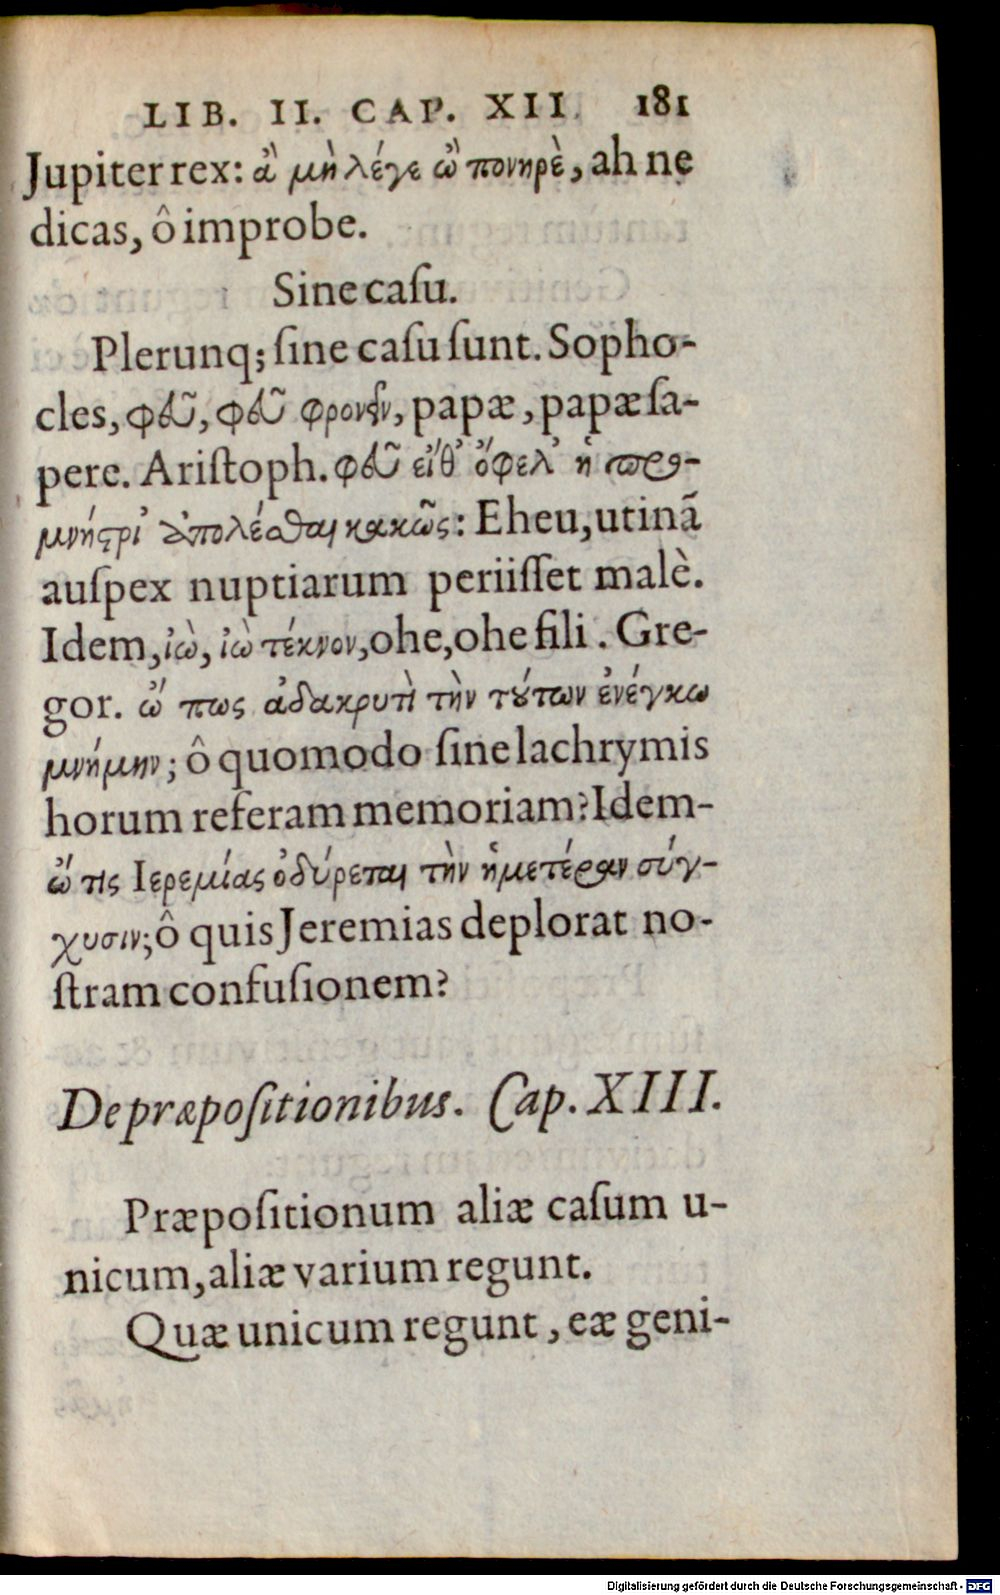 LIB. II. CAP. XII. 181
Jupiter rex: ἆ μὴ λέγε ὦ πονηρὲ, ah ne
dicas, ô improbe.
Sine caſu.
Plerunq; ſine caſu ſunt. Sopho-
cles, φεῦ, φεῦ φρονεῖν, papæ, papæ ſa-
pere. Ariſtoph. φεῦ εἴθ᾽ ὄφελ᾽ ἡ προ-
μνήστρι᾽ ἀπολέσθαι κακῶς: Eheu, utinã
auſpex nuptiarum periiſſet malè.
Idem, ἰὼ, ἰὼ τέκνον, ohe, ohe fili. Gre-
gor. ὤ πως ἀδακρυτὶ τὴν τούτων ἐνέγκω
μνήμην; ô quomodo ſine lachrymis
horum referam memoriam? Idem-
ὤ τις Ιερεμίας ὀδύρεται τὴν ἡμετέραν σύγ-
χυσιν; ô quis Jeremias deplorat no-
ſtram confuſionem?
De præpoſitionibus. Cap. XIII.
Præpoſitionum aliæ caſum u-
nicum, aliæ varium regunt.
Quæ unicum regunt, eæ geni-
Digitalisierung gefördert durch die Deutsche Forschungsgemeinschaft - DFG